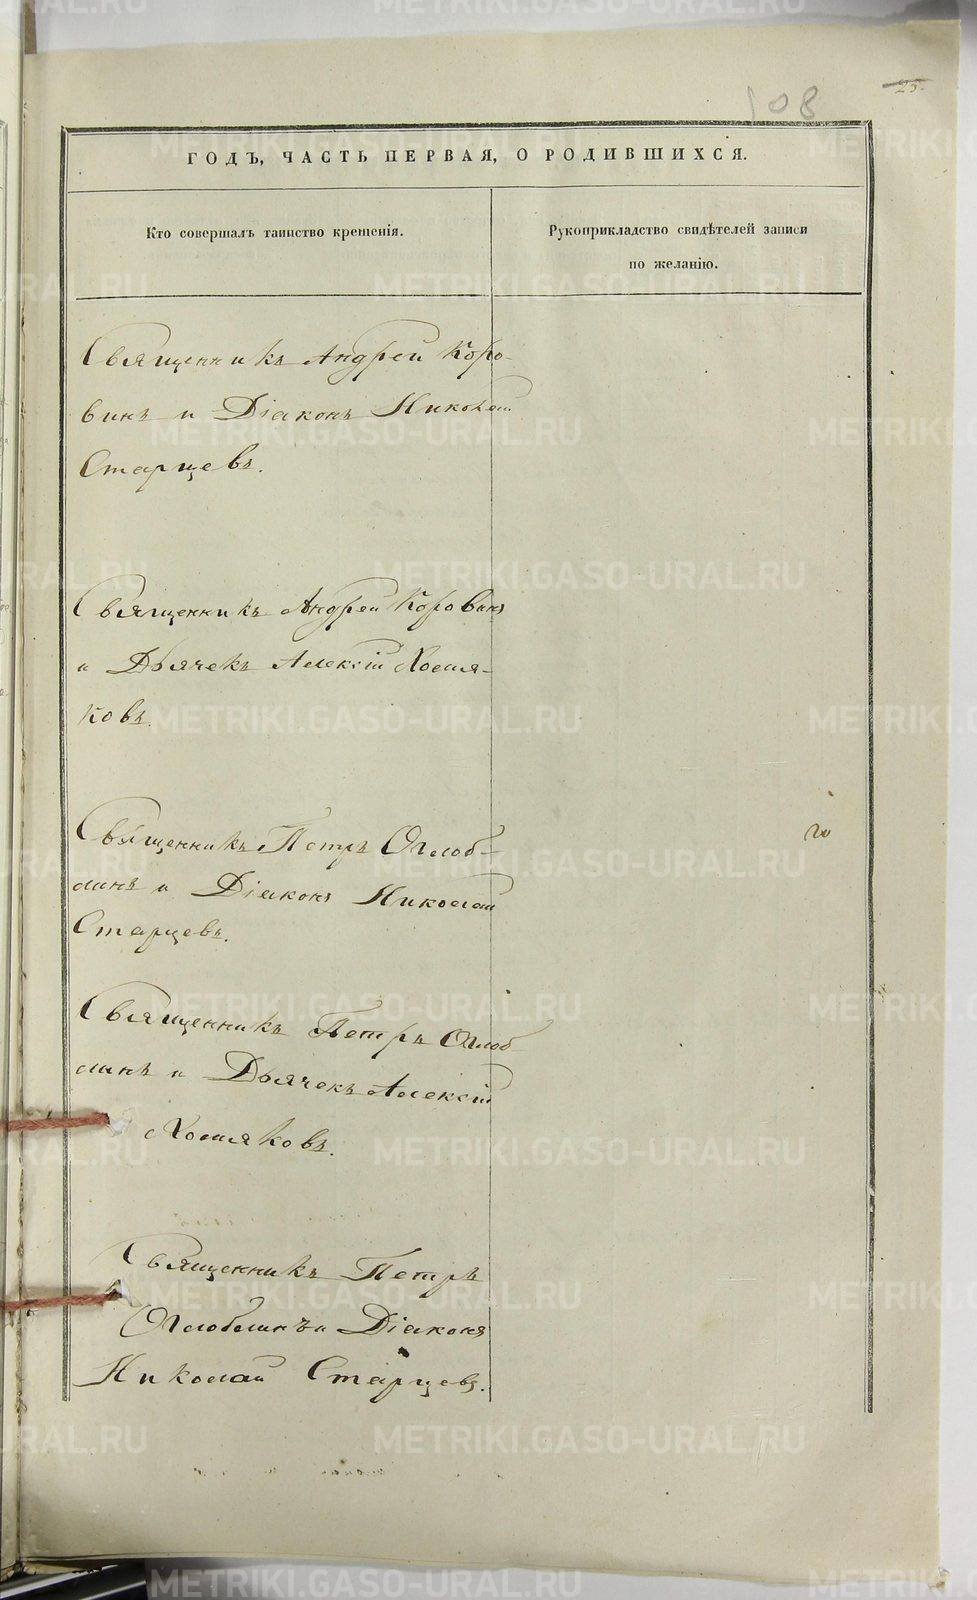 108
25.
ГОДЪ, ЧАСТЬ ПЕРВАЯ, О РОДИВШИХСЯ.
Кто совершалъ таинство крещенія.
Рукоприкладство свидѣтелей записи
по желанію.
Священникъ Андрей Коро-
винъ и Діаконъ Николай
Старцевъ.
Священникъ Андрей Коровинъ
и Дьячекъ Алексій Хомля-
ковъ.
Священникъ Петръ Оглоб-
линъ и Діаконъ Николай
Старцевъ.
Священникъ Петръ Оглоб-
линъ и Дьячекъ Алексій
Хомляковъ.
Священникъ Петръ
Оглоблинъ и Діаконъ
Николай Старцевъ.
METRIKI.GASO-URAL.RU